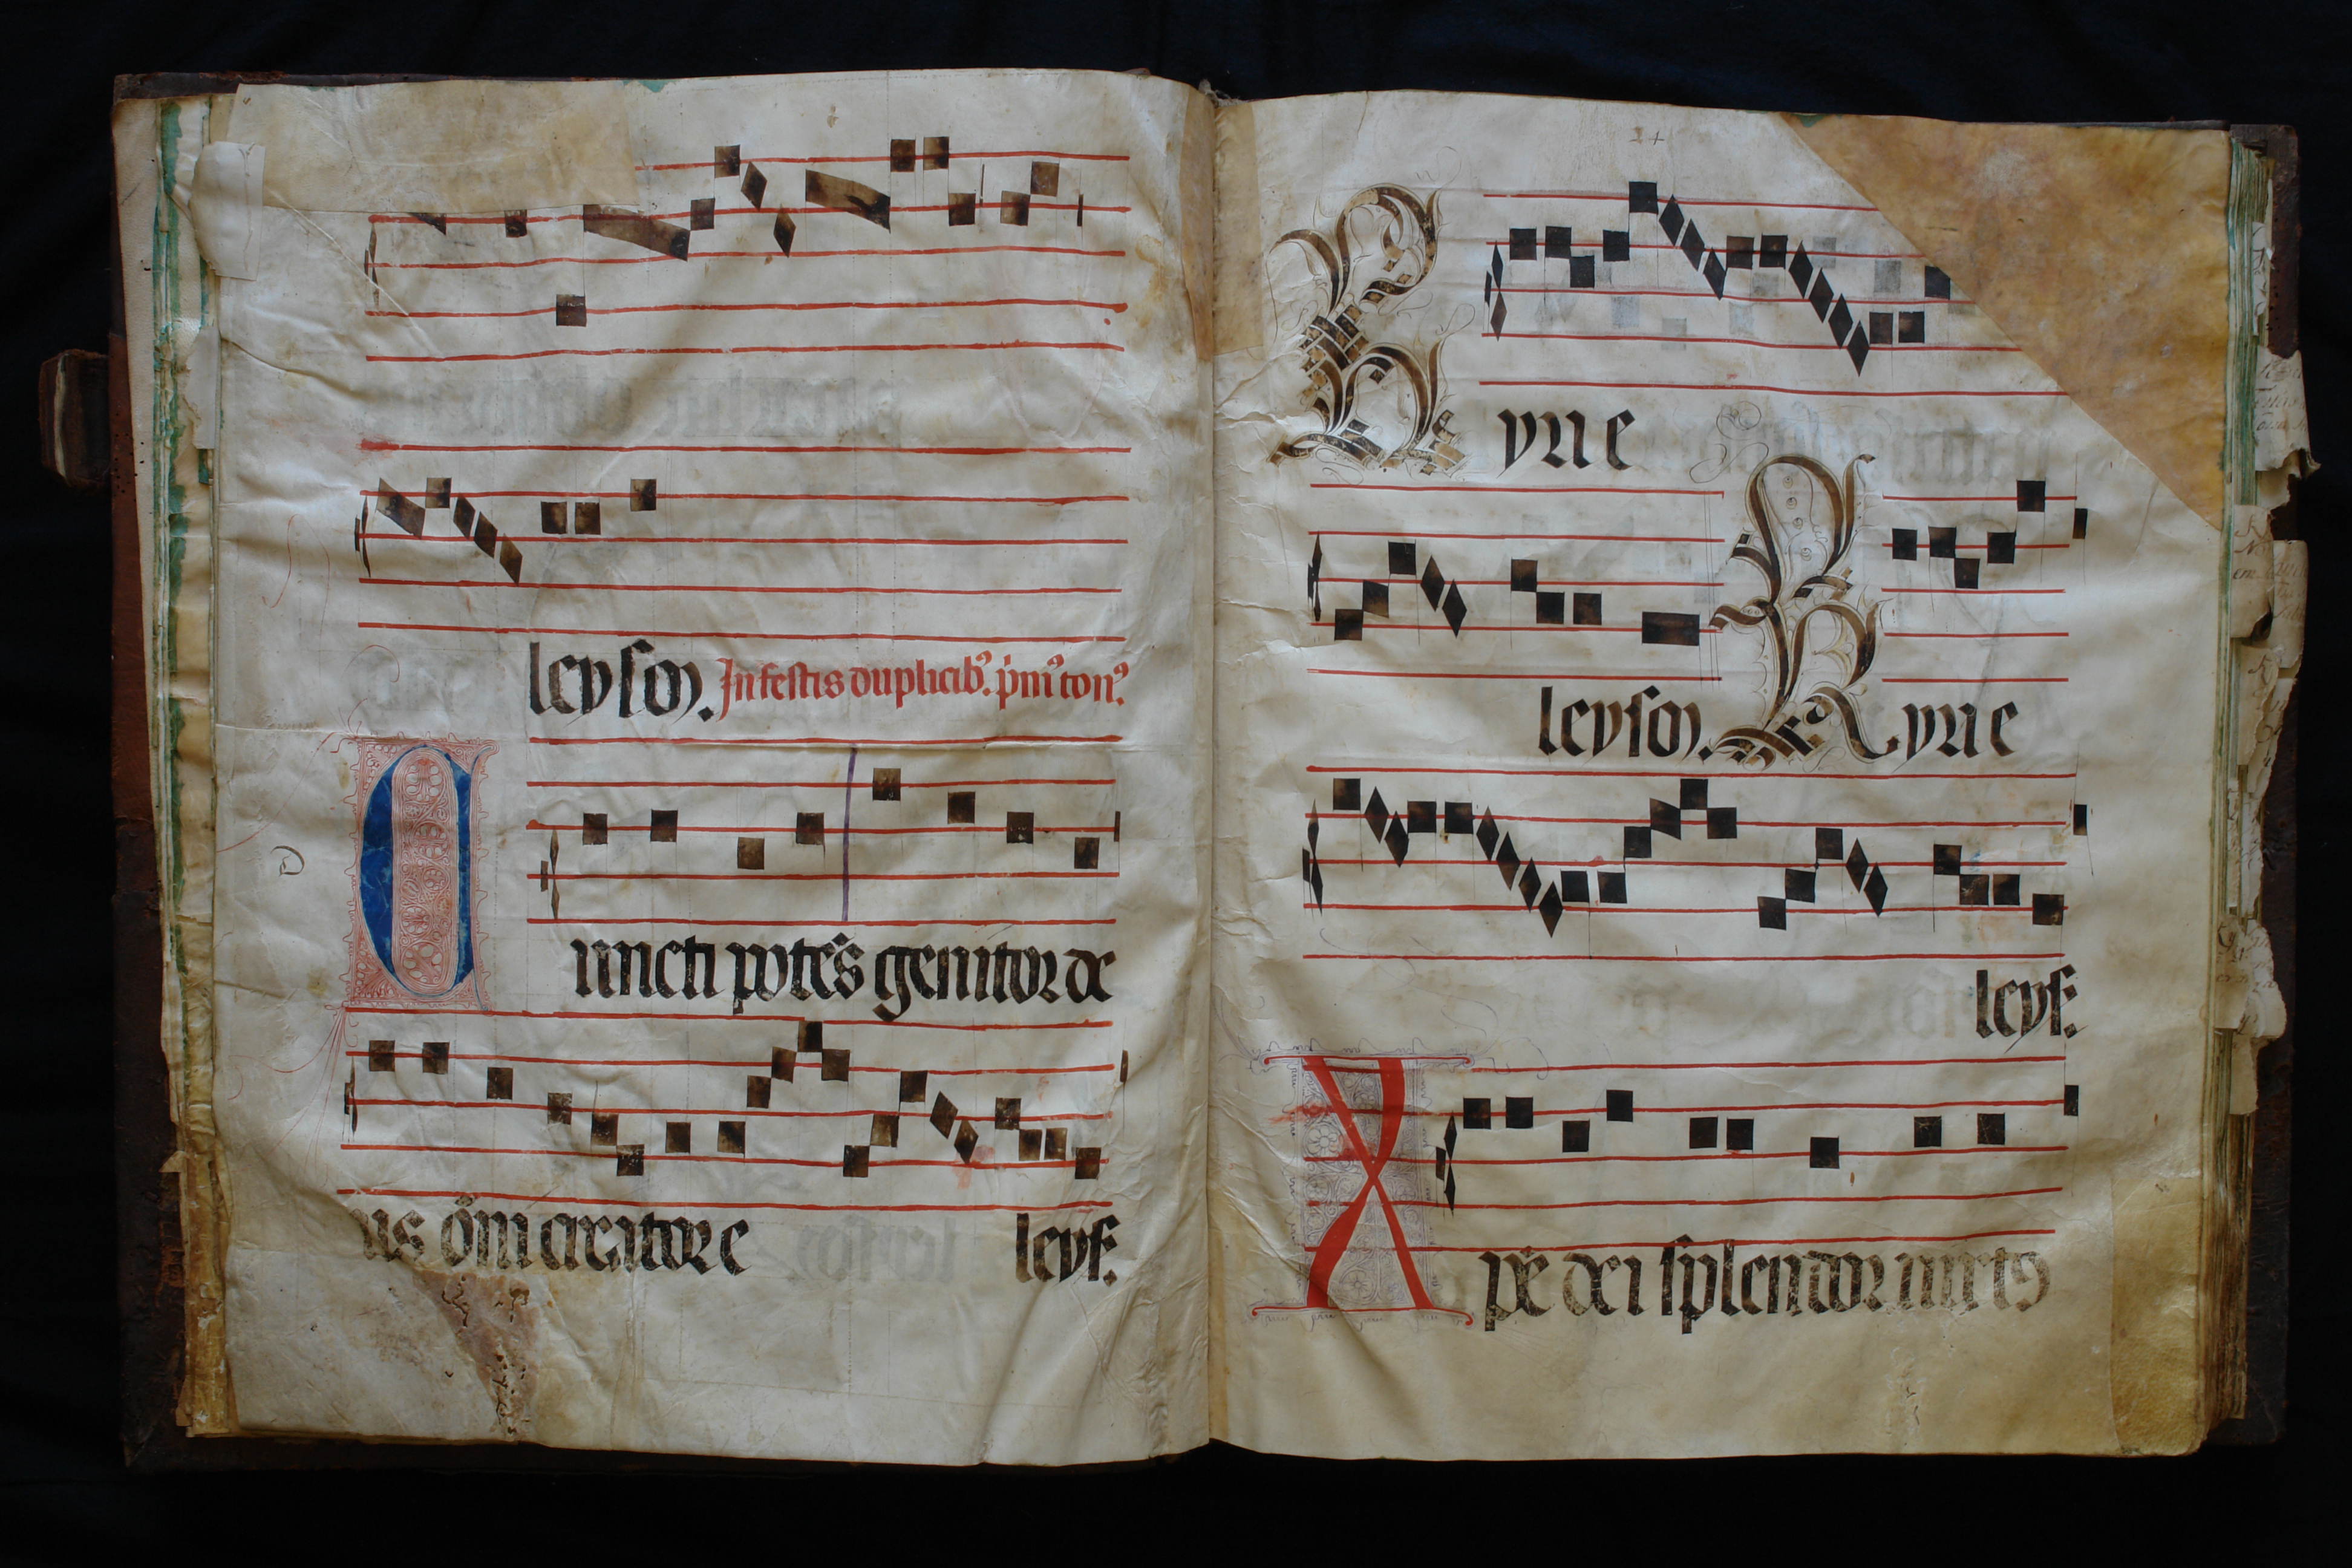 leyson. In festis duplicib⁹. p̄m⁹ ton⁹.
Cuncti potē̄s genitor de
us ōm̄i creator e leys.
Kyrie
leyson. Kyrie
leys.
Xpē dei splendor